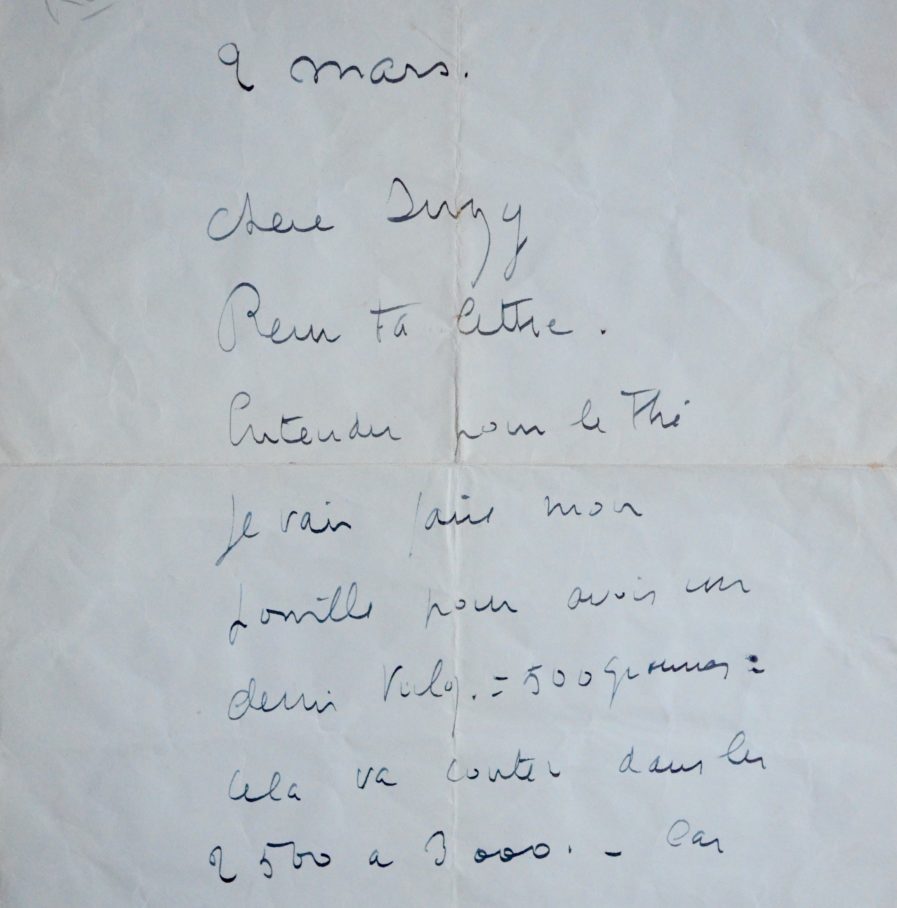 2 mars.
Chere Suzy
Recu ta lettre.
Entendu pour le Thé
Je vais faire mon
possible pour avoir un
demi = 500 grammes =
cela va couter dans les
2 500 a 3 000. - Car